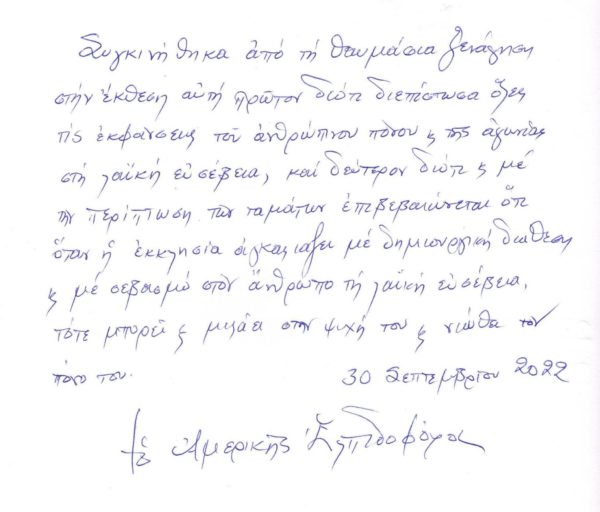 Συγκινήθηκα ἀπό τή θαυμάσια ξενάγηση
στήν ἔκθεση αὐτή πρῶτον διότι διεπίστωσα ὅλες
τίς ἐκφάνσεις τοῦ ἀνθρώπινου πόνου ϗ τῆς ἀγωνίας
στή λαϊκή εὐσέβεια, καί δεύτερον διότι ϗ μέ
τήν περίπτωση τῶν ταμάτων ἐπιβεβαιώνεται ὅτι
ὅταν ἡ ἐκκλησία ἀγκαλιάζει μέ δημιουργική διάθεση
ϗ μέ σεβασμό στόν ἄνθρωπο τή λαϊκή εὐσέβεια,
τότε μπορεῖ ϗ μιλάει στήν ψυχή του ϗ νιώθει τόν
πόνο του.
30 Σεπτεμβρίου 2022
† ὁ Ἀμερικῆς Ἐλπιδοφόρος